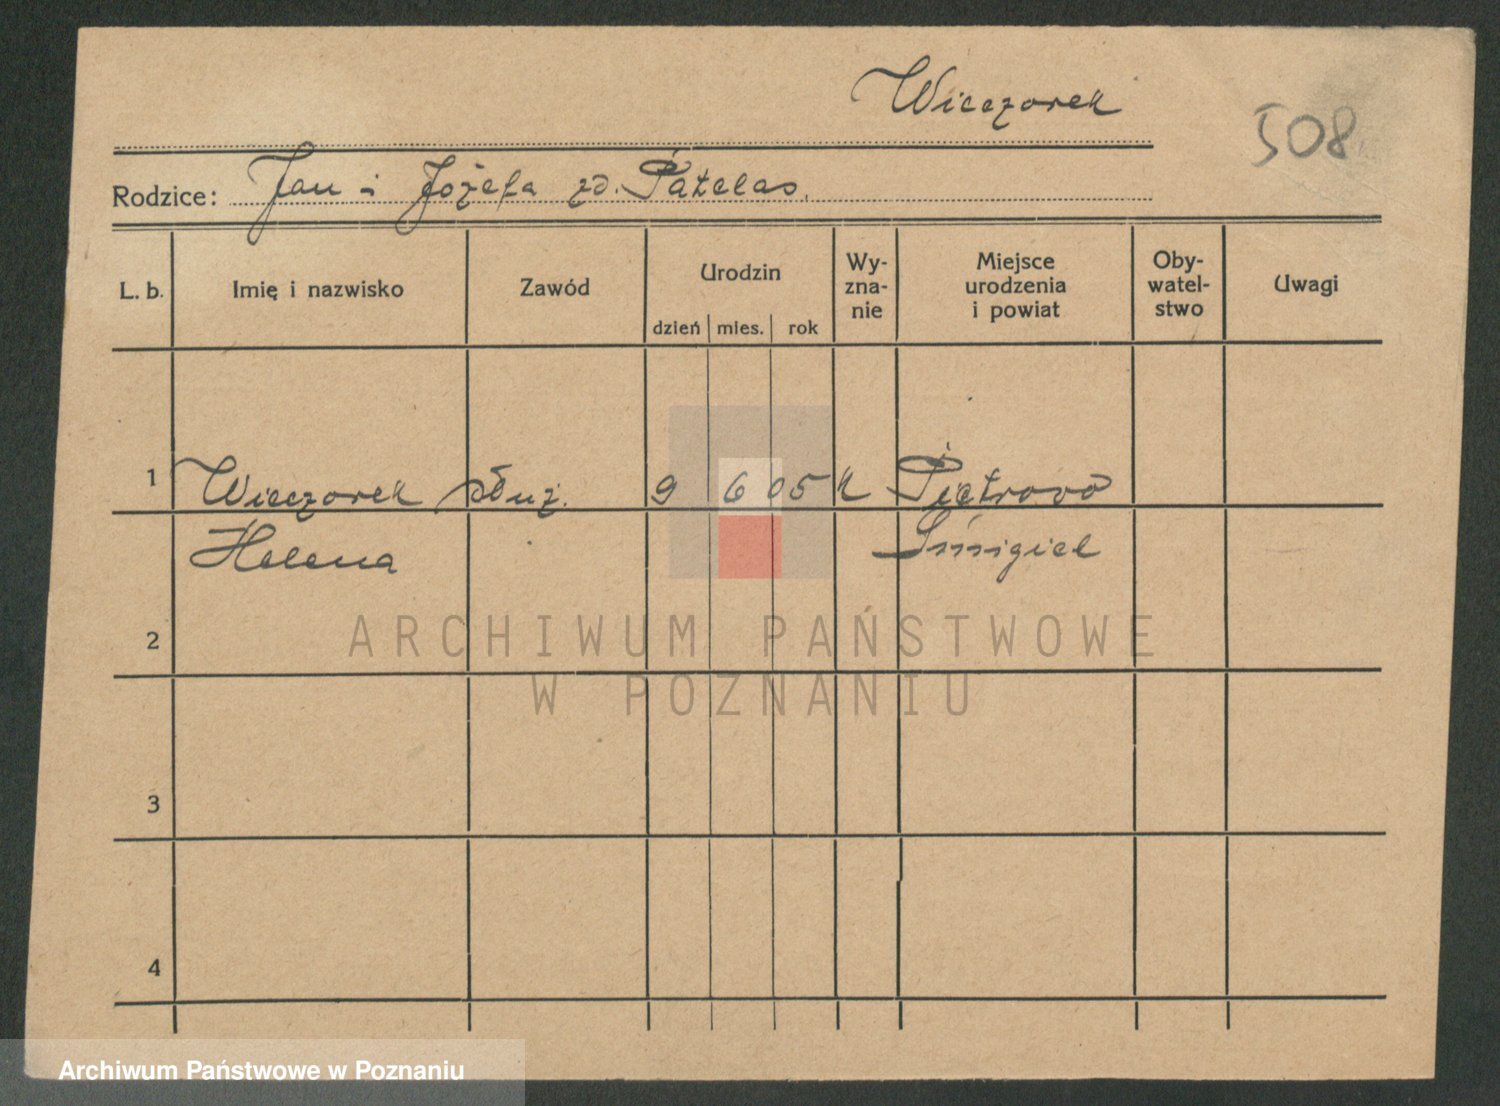 Wieczorek
508
Rodzice: Jan i Józefa zd. Patelas.
L. b. Imię i nazwisko Zawód Urodzin Wy- zna- nie Miejsce urodzenia i powiat Oby- watel- stwo Uwagi
dzień mies. rok
1 Wieczorek służ. 9 6 05 k
Helena Śmigiel
2
3
4
ARCHIWUM PAŃSTWOWE
W POZNANIU
Archiwum Państwowe w Poznaniu